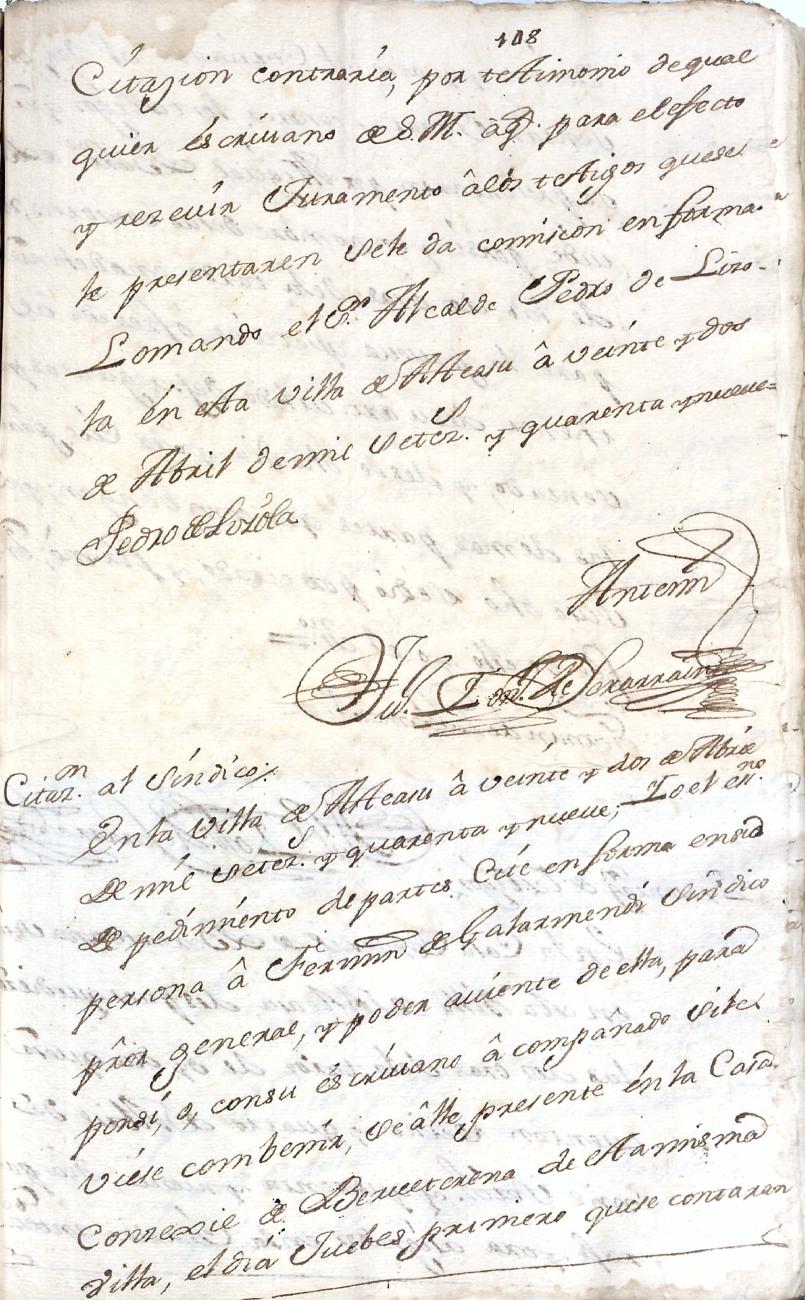 108
Citazion contraria, por testimonio de qual
quier escrivano de S. M. âq.n para el efecto
y rezevir Juramento âlos testigos quese
le presentaren se le da comision en forma.
Lomando el S.or Alcalde Pedro de Loyo-
la én esta villa de Asteasu â veinte y dos
de Abril demil Setez.s y quarenta y nueve=
Pedro de Loyola
Antemi
de Sorarrain
Citaz.on al Síndico
En la villa de Asteasu â veinte y dos de Abril
de mil Setez.s y quarenta y nueve, Io el es.no
de pedimiento de partes Cité en forma en su
persona â Fermin de Galarmendi Síndico
prôr general, y poder aviente de ella, para
porsí, o, consu éscrivano âcompañado site
viese combenir, se âlle presente én la Casa
Conzexil de Berueterena de esta misma
villa, el día Juebes primero quese contaran